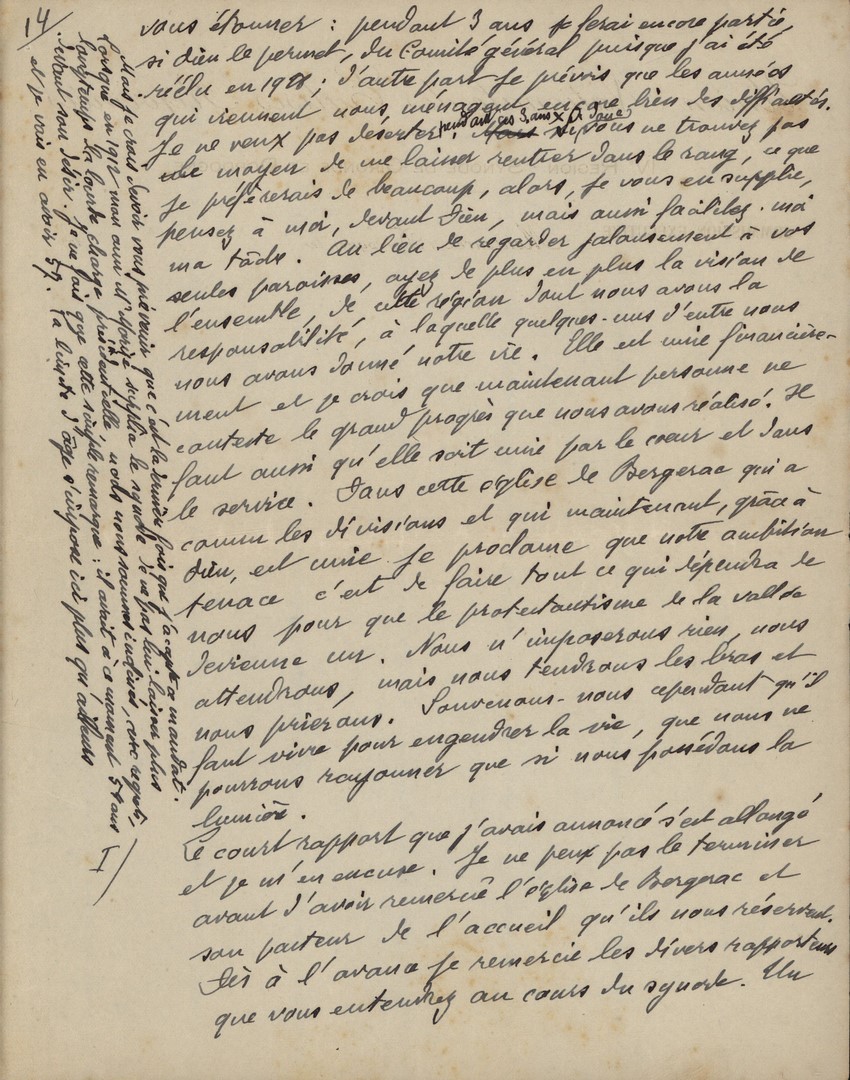 14/
vous étonner : pendant 3 ans je ferai encore partie,
si Dieu le permet, du Comité général puisque j'ai été
réélu en 1928 ; d'autre part je prévois que les années
qui viennent nous ménagent encore bien des difficultés.
Je ne veux pas déserter pendant ces 3 ans x Si donc vous ne trouvez pas
le moyen de me laisser rentrer dans le rang, ce que
je préférerais de beaucoup, alors, je vous en supplie,
pensez à moi, devant Dieu, mais aussi facilitez-moi
ma tâche. Au lieu de regarder jalousement à vos
seules paroisses, ayez de plus en plus la vision de
l'ensemble, de cette région dont nous avons la
responsabilité, à laquelle quelques-uns d'entre nous
nous avons donné notre vie. Elle est unie financière-
ment et je crois que maintenant personne ne
conteste le grand progrès que nous avons réalisé. Il
faut aussi qu'elle soit unie par le coeur et dans
le service. Dans cette église de Bergerac qui a
connu les divisions et qui maintenant, grâce à
Dieu, est unie je proclame que notre ambition
tenace c'est de faire tout ce qui dépendra de
nous pour que le protestantisme de la vallée
devienne un. Nous n'imposerons rien, nous
attendrons, mais nous tendrons les bras et
nous prierons. Souvenons-nous cependant qu'il
faut vivre pour engendrer la vie, que nous ne
pourrons rayonner que si nous possédons la
lumière.
Le court rapport que j'avais annoncé s'est allongé
et je m'en excuse. Je ne peux pas le terminer
avant d'avoir remercié l'église de Bergerac et
son pasteur de l'accueil qu'ils nous réservent.
Dès à l'avance je remercie les divers rapporteurs
que vous entendrez au cours du synode. Un
Mais je crois devoir vous prévenir que c'est la dernière fois que j'accepte ce mandat.
Lorsque en 1912 mon ami M. supplia le synode de ne pas lui laisser plus
longtemps la lourde charge présidentielle, nous nous sommes inclinés, avec regret,
devant son désir. Je ne fais que cette simple remarque : il avait à ce moment 51 ans
et je vais en avoir 59. La limite d'âge s'impose ici plus qu'ailleurs
I/